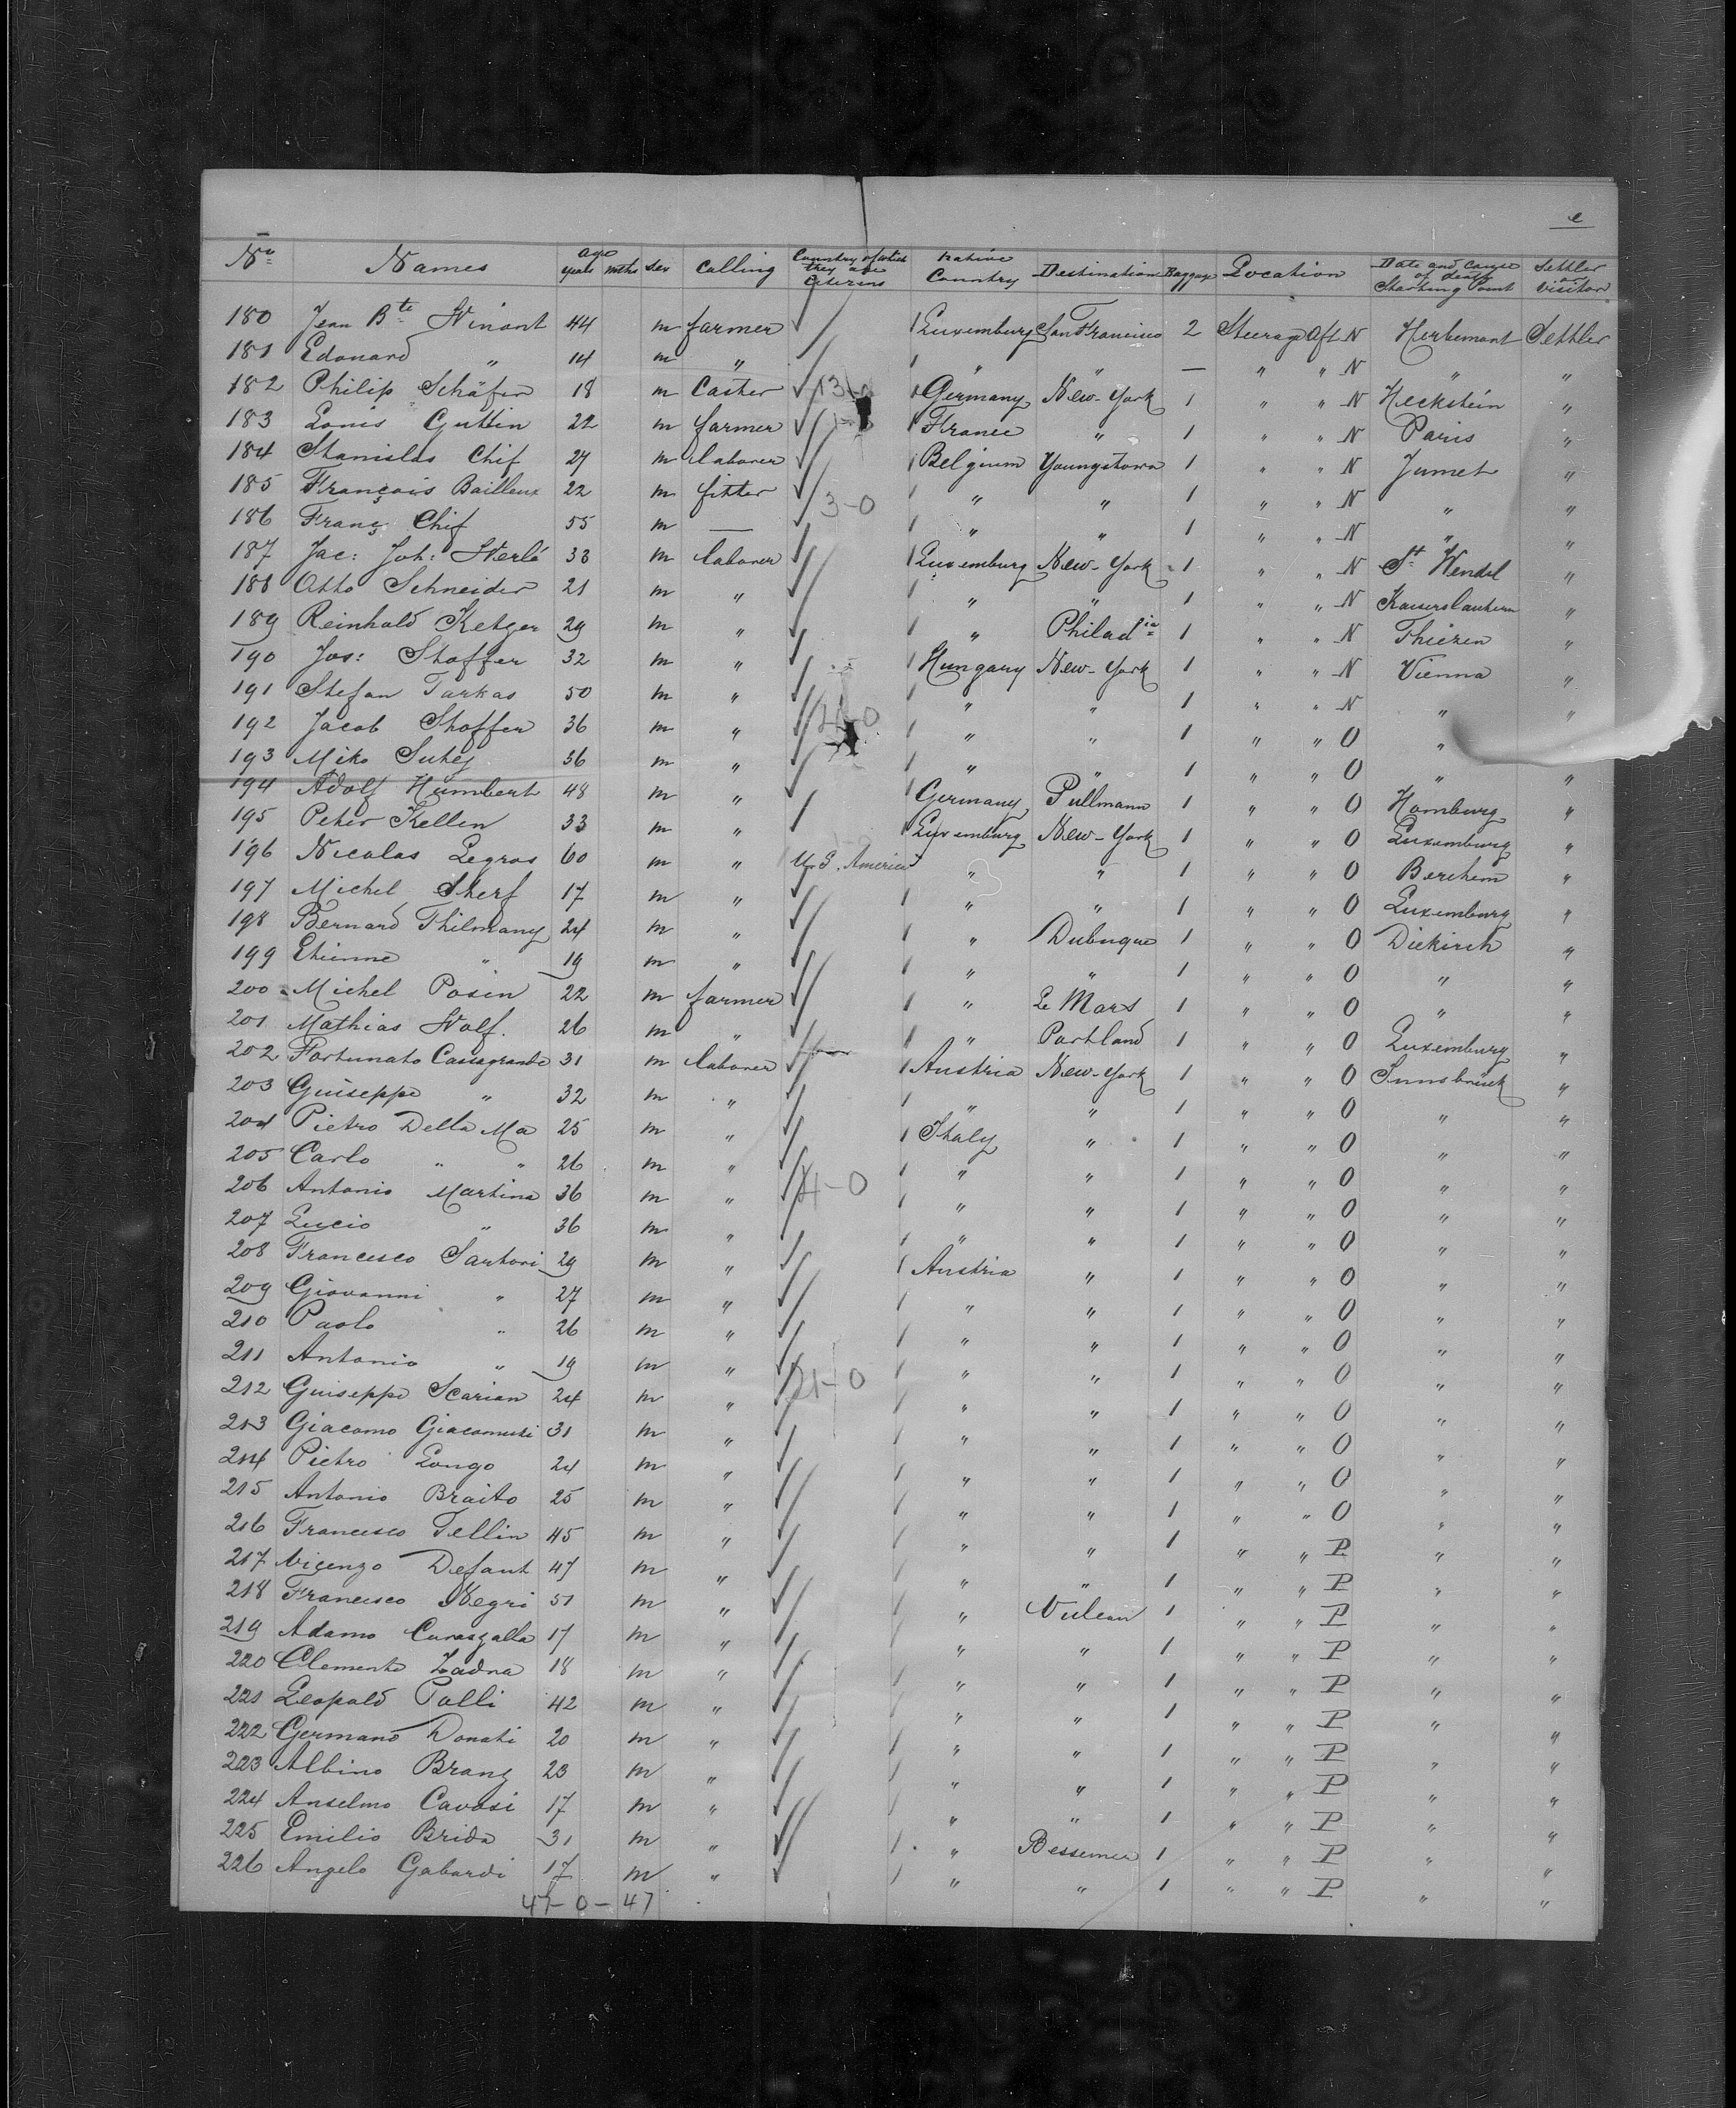 e
No Names age years mths sex Calling Country of which they are citizens native Country Destination Baggage Location Date and Cause of death Starting Point Settler or visitor
180 Jean Bte Winant 44 m farmer 1 Luxemburg San Francisco 2 Steerage Aft N Herbemont Settler
181 Edouard " 14 m " 1 " " — " " N " "
182 Philip Schäfer 18 m Caster 1 Germany New-York 1 " " N Heckstein "
183 Louis Guttin 22 m farmer 1 France " 1 " " N Paris "
184 Stanislas Chif 27 m laborer 1 Belgium Youngstown 1 " " N Jumet "
185 François Bailleux 22 m fitter 3-0 1 " " 1 " " N " "
186 Franç Chif 55 m — 1 " " 1 " " N " "
187 Jac: Joh: Werlé 33 m laborer 1 Luxemburg New-York 1 " " N St Wendel "
188 Otto Schneider 21 m " 1 " " 1 " " N Kaiserslautern "
189 Reinhald Ketzer 29 m " 1 " Philadia 1 " " N Thiezen "
190 Jos: Stoffer 32 m " 1 Hungary New-York 1 " " N Vienna "
191 Stefan Tarkas 50 m " 1 " " 1 " " N " "
192 Jacob Stoffer 36 m " 1 " " 1 " " O "
193 Miko Sutej 36 m " 1 " " 1 " " O " "
194 Adolf Humbert 48 m " 1 Germany Pullmann 1 " " O Homburg "
195 Peter Kellen 33 m " 1 Luxemburg New-York 1 " " O Luxemburg "
196 Nicolas Legros 60 m " U.S. America " " 1 " " O Berchem "
197 Michel Scherf 17 m " 1 " " 1 " " O Luxemburg "
198 Bernard Thilmany 24 m " 1 " Dubuque 1 " " O Diekirch "
199 Etienne " 19 m " 1 " " 1 " " O " "
200 Michel Posin 22 m farmer 1 " Le Mars 1 " " O " "
201 Mathias Wolf. 26 m " 1 " Portland 1 " " O Luxemburg "
202 Fortunato Casagrande 31 m laborer 1 Austria New-York 1 " " O Innsbruck "
203 Guiseppe " 32 m " 1 " " 1 " " O " "
204 Pietro Della Ma 25 m " 1 Italy " 1 " " O " "
205 Carlo " " 26 m " 1 " " 1 " " O " "
206 Antonio Martina 36 m " 4-0 " " 1 " " O " "
207 Lucio " 36 m " 1 " " 1 " " O " "
208 Francesco Sartori 29 m " 1 Austria " 1 " " O " "
209 Giovanni " 27 m " 1 " " 1 " " O " "
210 Paolo " 26 m " 1 " " 1 " " O " "
211 Antonio " 19 m " 21-0 1 " " 1 " " O " "
212 Guiseppe Scarian 24 m " 1 " " 1 " " O " "
213 Giacomo Giacomuzi 31 m " 1 " " 1 " " O " "
214 Pietro Longo 24 m " 1 " " 1 " " O " "
215 Antonio Braito 25 m " 1 " " 1 " " O " "
216 Francesco Tellin 45 m " 1 " " 1 " " P " "
217 Vicenzo Defant 47 m " 1 " " 1 " " P " "
218 Francesco Negri 51 m " 1 " Vulcan 1 " " P " "
219 Adamo 17 m " 1 " " 1 " " P " "
220 Clemente Zadra 18 m " 1 " " 1 " " P " "
221 Leopold Polli 42 m " 1 " " 1 " " P " "
222 Germano Donati 20 m " 1 " " 1 " " P " "
223 Albino Branz 23 m " 1 " " 1 " " P " "
224 Anselmo Cavosi 17 m " 1 " " 1 " " P " "
225 Emilio Brida 31 m " 1 " Bessemer 1 " " P " "
226 Angelo Gabardi 17 m " 1 " " 1 " " P " "
47-0-47